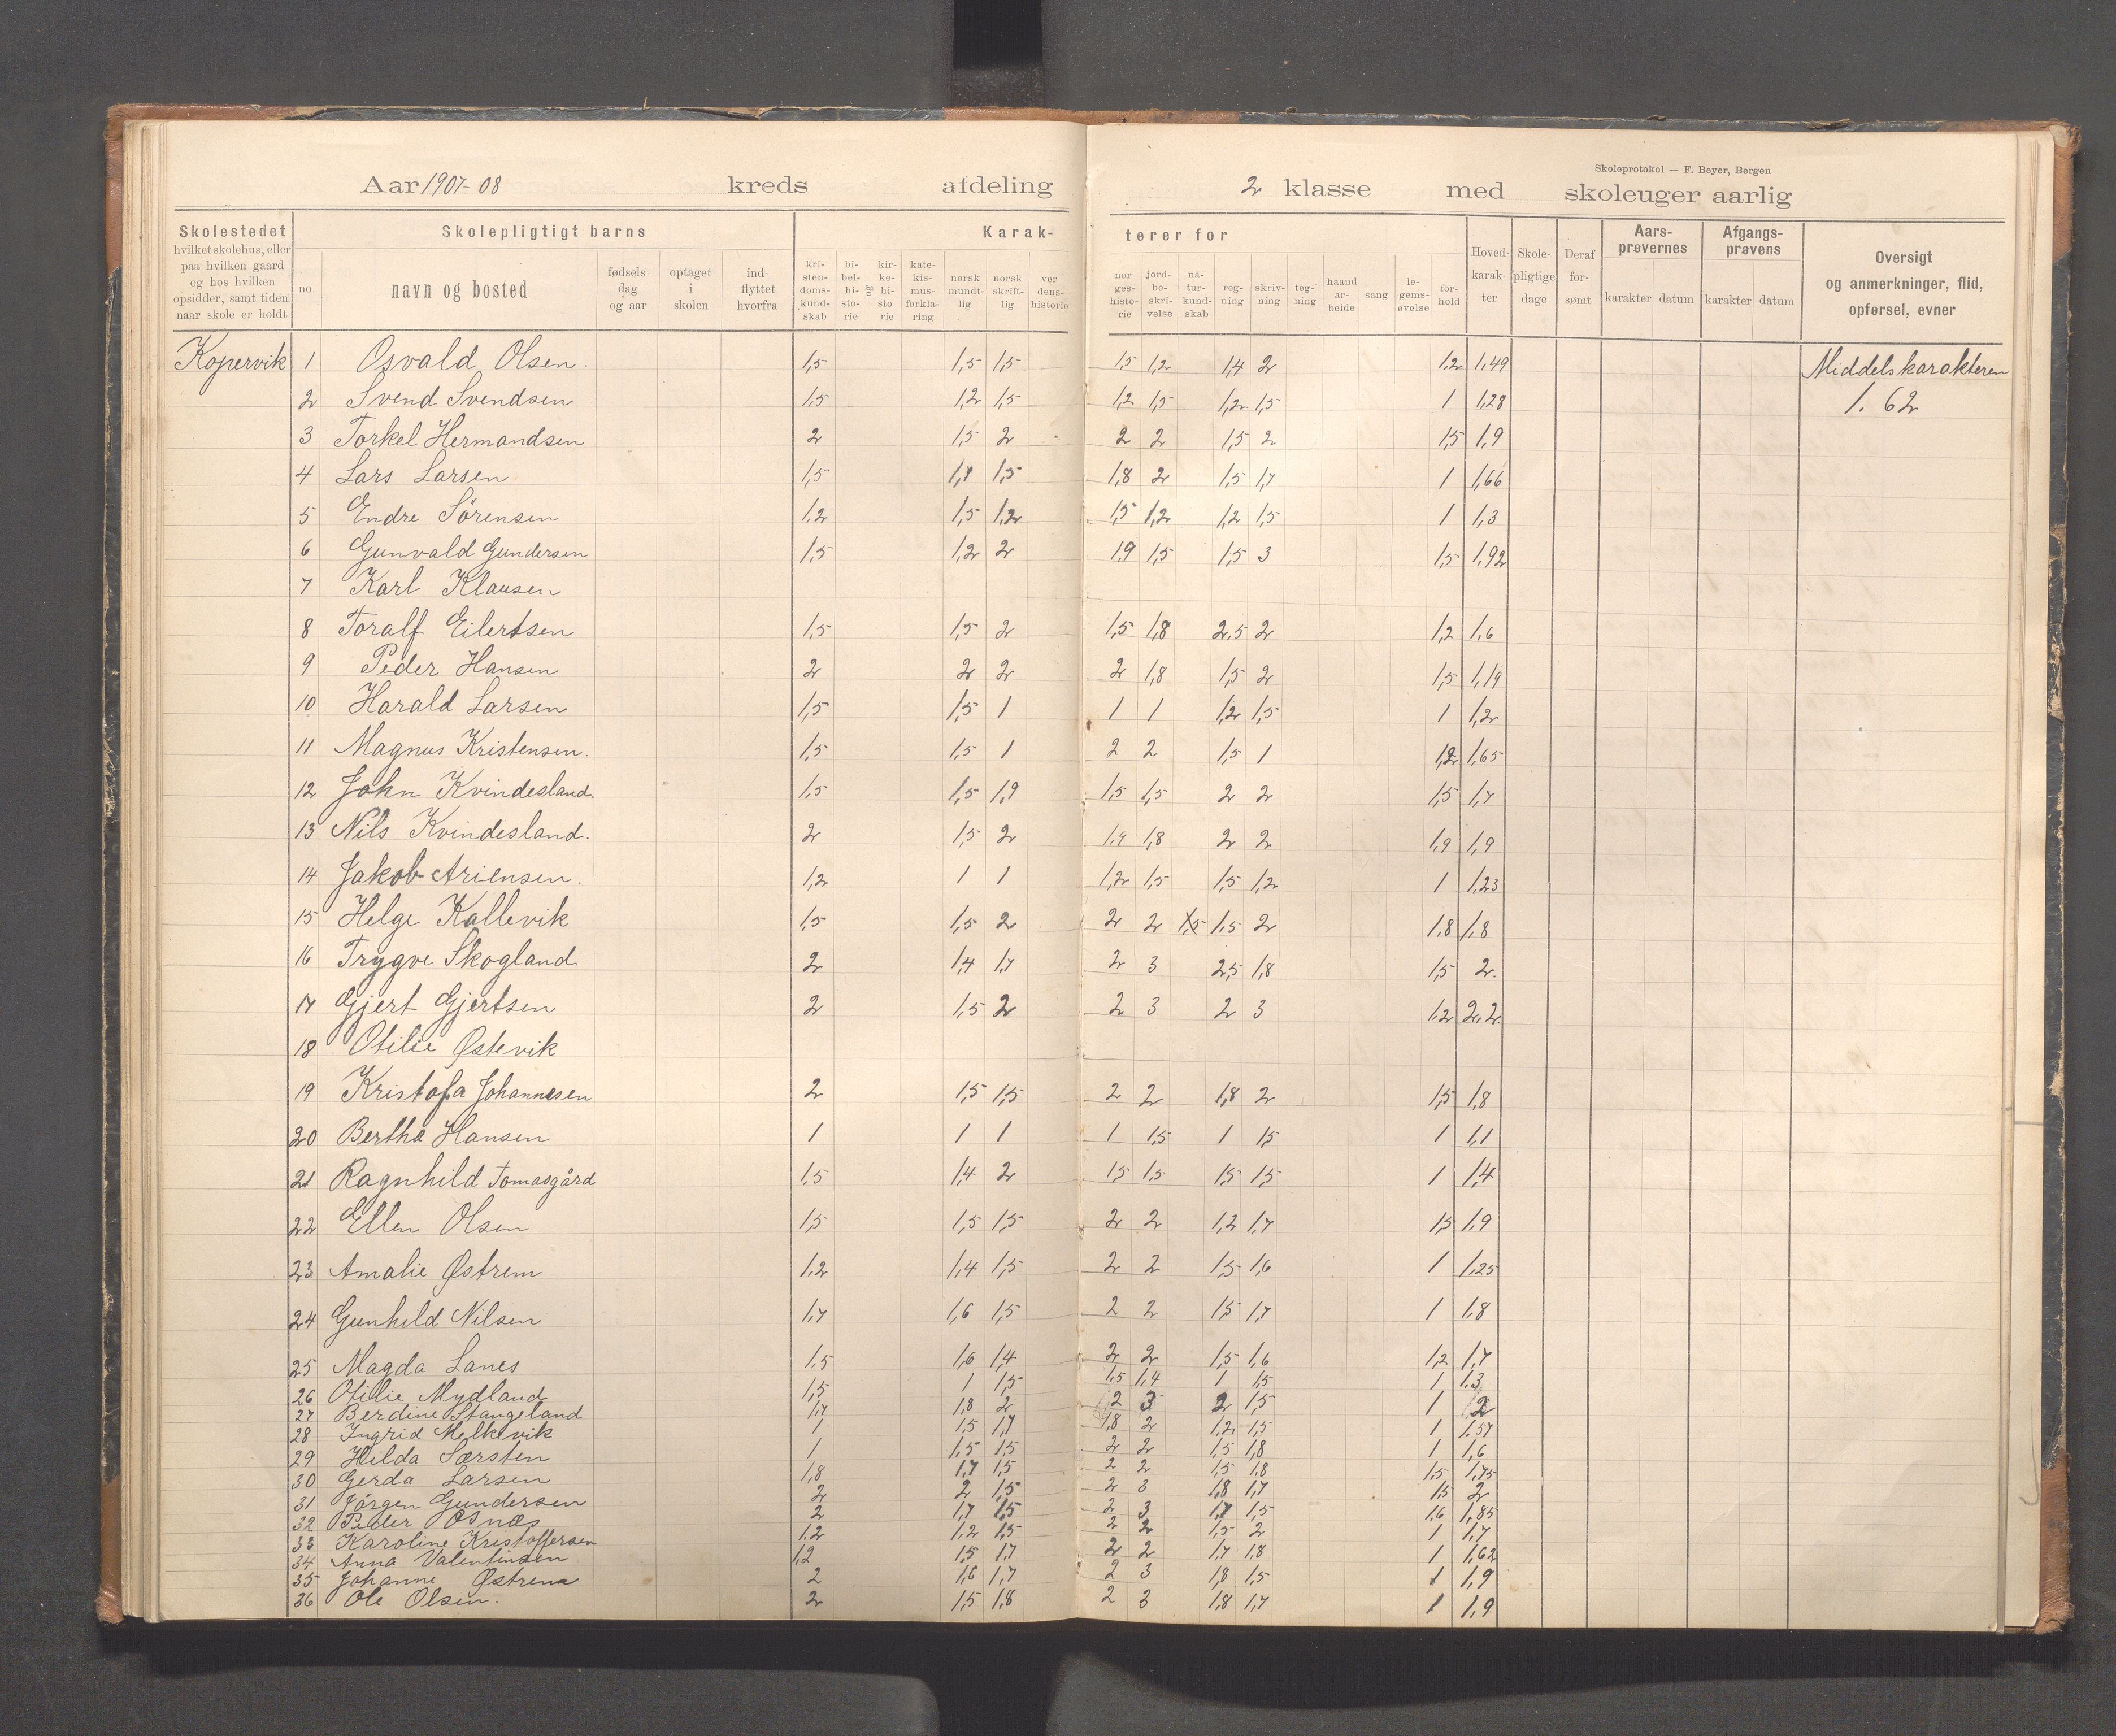 Skoleprotokol — F. Beyer, Bergen
Aar 1907-08 kreds afdeling 2 klasse med skoleuger aarlig
Skolestedet hvilket skolehus, eller paa hvilken gaard og hos hvilken opsidder, samt tiden naar skole er holdt
Skolepligtigt barns
no. navn og bosted fødsels-dag og aar optaget i skolen ind-flyttet hvorfra
Karak- terer for
kri-sten-doms-kund-skab bi-bel-hi-sto-rie og kir-ke-hi-sto rie kate-kis-mus-forkla-ring norsk mundt-lig norsk skrift-lig ver dens-historie
nor ges-histo-rie jord-be-skri-velse na-tur-kund-skab reg-ning skriv-ning teg-ning haand ar-beide sang le-gems-øvelse for-hold
Hoved-karak-ter Skole-pligtige dage Deraf for-sømt
Aars-prøvernes karakter datum Afgangs-prøvens karakter datum
Oversigt og anmerkninger, flid, opførsel, evner
Kopervik 1 Osvald Olsen. 1,5 1,5 1,5 1,5 1,2 1,4 2 1,2 1,49 Middelskarakteren
2 Svend Svendsen 1,5 1,2 1,5 1,2 1,5 1,2 1,5 1 1,28 1.62
3 Torkel Hermandsen 2 1,5 2 2 2 1,5 2 1,5 1,9
4 Lars Larsen 1,5 1,7 1,5 1,8 2 1,5 1,7 1 1,66
5 Endre Sörensen 1,2 1,5 1,2 1,5 1,2 1,2 1,5 1 1,3
6 Gunvald Gundersen 1,5 1,2 2 1,9 1,5 1,5 3 1,5 1,92
7 Karl Klausen
8 Toralf Eilertsen 1,5 1,5 2 1,5 1,8 2,5 2 1,2 1,6
9 Peder Hansen 2 2 2 2 1,8 1,5 2 1,5 1,19
10 Harald Larsen 1,5 1,5 1 1 1 1,2 1,5 1 1,2
11 Magnus Kristensen. 1,5 1,5 1 2 2 1,5 1 1,2 1,65
12 John Kvindesland. 1,5 1,5 1,9 1,5 1,5 2 2 1,5 1,7
13 Nils Kvindesland. 2 1,5 2 1,9 1,8 2 2 1,9 1,9
14 Jakob Ariensen. 1,2 1 1 1,2 1,5 1,5 1,2 1 1,23
15 Helge Kallevik 1,5 1,5 2 2 2 1,5 1,5 2 1,8 1,8
16 Trygve Skogland 2 1,4 1,7 2 3 2,5 1,8 1,5 2.
17 Gjert Gjertsen 2 1,5 2 2 3 2 3 1,2 2,2
18 Otilie Østevik
19 Kristofa Johannesen 2 1,5 1,5 2 2 1,8 2 1,5 1,8
20 Bertha Hansen 1 1 1 1 1,5 1 1,5 1 1,1
21 Ragnhild Tomasgård 1,5 1,4 2 1,5 1,5 1,5 1,5 1 1,4
22 Ellen Olsen 1,5 1,5 1,5 2 2 1,2 1,7 1,5 1,9
23 Amalie Østrem 1,2 1,4 1,5 2 2 1,5 1,6 1 1,25
24 Gunhild Nilsen 1,7 1,6 1,5 2 2 1,5 1,7 1 1,8
25 Magda Lanes 1,5 1,6 1,4 2 2 1,5 1,6 1,2 1,7
26 Otilie Mydland 1,5 1 1,5 1,5 1,4 1 1,5 1 1,3
27 Berdine Stangeland 1,7 1,8 2 2 3 2 1,5 1 2
28 Ingrid Melkevik 1 1,5 1,7 1,8 2 1,2 1,5 1 1,57
29 Hilda Særsten 1 1,5 1,5 2 2 1,5 1,8 1 1,6
30 Gerda Larsen 1,8 1,7 1,5 2 2 1,5 1,8 1,5 1,75
31 Jörgen Gundersen 2 2 1,5 2 3 1,8 1,7 1,5 2
32 Peder Osnæs 2 1,7 1,5 2 3 1,7 1,5 1,6 1,85
33 Karoline Kristoffersen 1,2 1,2 1,5 2 2 1,5 2 1 1,7
34 Anna Valentinsen 1,2 1,5 1,7 2 2 1,7 1,8 1 1,62
35 Johanne Østrem 2 1,6 1,7 2 3 1,8 1,5 1 1,9
36 Ole Olsen. 2 1,5 1,8 2 3 1,8 1,7 1 1,9